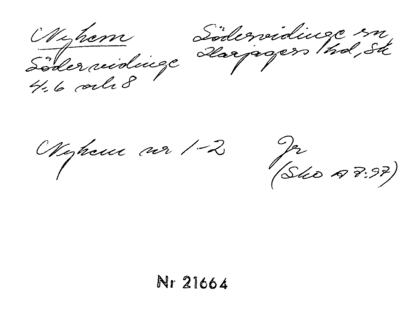 Nyhem Södervidinge sn,
Södervidinge Harjagers hd, Sk
4:6 och 8
Nyhem nr 1-2 Jr
(Sko A 7:97)
Nr 21664